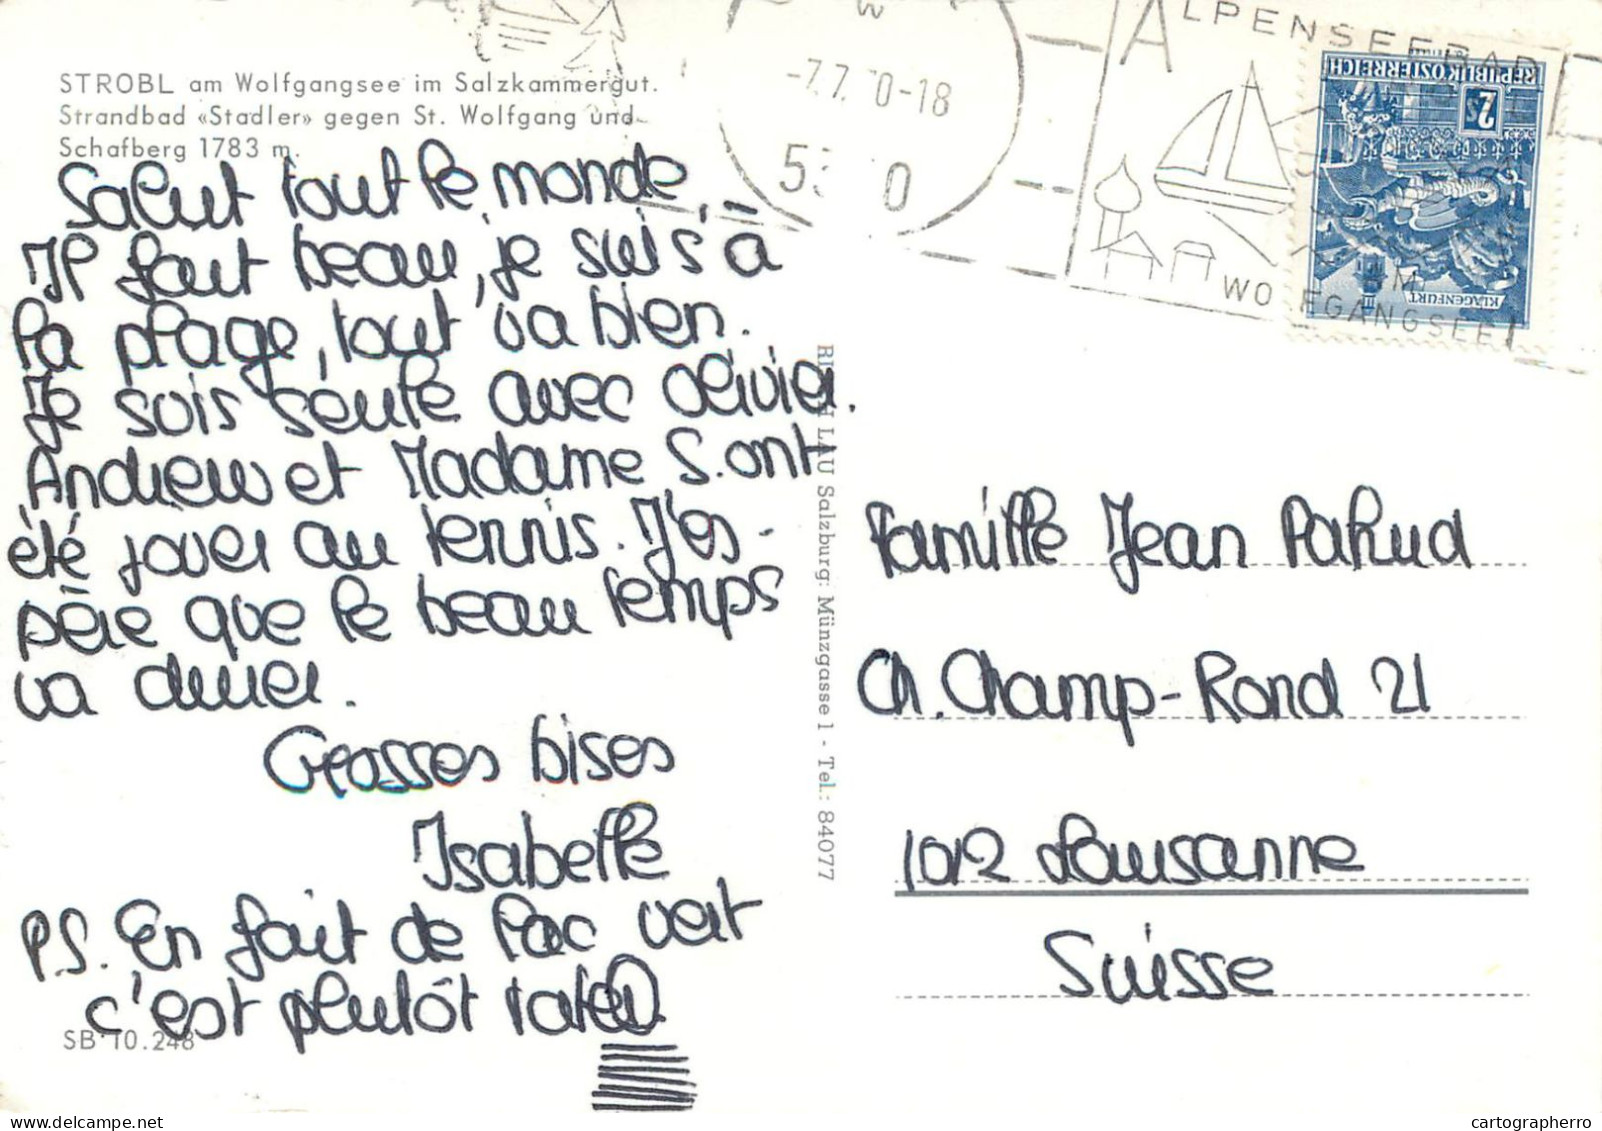 STROBL am Wolfgangsee im Salzkammergut.
Strandbad «Stadler» gegen St. Wolfgang und
Schafberg 1783 m.
Salut tout le monde,
Il fait beau, je suis à
la plage, tout va bien.
Je suis seule avec Olivier.
Andrew et Madame S. ont
été jouer au tennis. J'es-
père que le beau temps
va durer.
Grosses bises
Isabelle
P.S. En fait de lac vert
c'est plutôt
SB 10.248
LAU Salzburg: Münzgasse 1 - Tel.: 84077
-7.7. 0-18
ALPENSEEBAD
WOLFGANGSEE
REPUBLIK ÖSTERREICH
2s
KLAGENFURT
Famille Jean Pahud
Ch. Champ-Rond 21
1012 Lausanne
Suisse
cartographerro